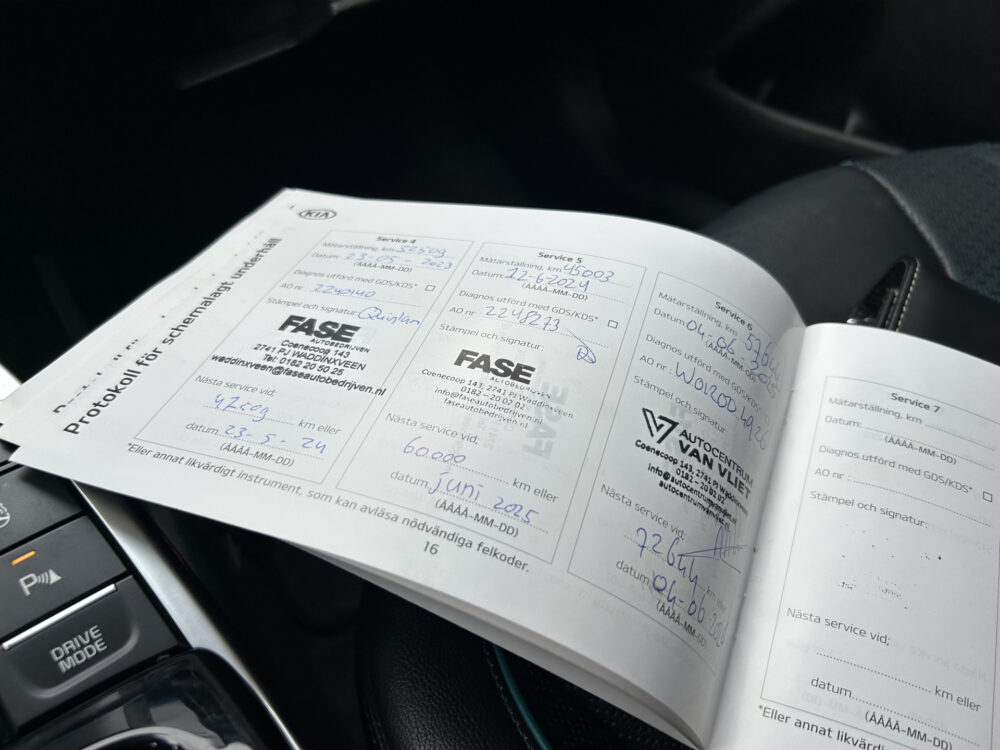 KIA
Protokoll för schemalagt underhåll
Service 4
Mätarställning, km 32509
Datum: 23-05-2023
(ÅÅÅÅ-MM-DD)
Diagnos utförd med GDS/KDS*
AO nr : 2240140
Stämpel och signatur: Quinlan
FASE
AUTOBEDRIJVEN
Coenecoop 143
2741 PJ WADDINXVEEN
Tel: 0182 20 50 25
waddinxveen@faseautobedrijven.nl
Nästa service vid:
47509 km eller
datum 23-5-24
(ÅÅÅÅ-MM-DD)
Service 5
Mätarställning, km 45003
Datum: 12-6-2024
(ÅÅÅÅ-MM-DD)
Diagnos utförd med GDS/KDS*
AO nr : 2248273
Stämpel och signatur:
FASE
AUTOBEDRIJVEN
Coenecoop 143, 2741 PJ Waddinxveen
0182 - 20 02 02
info@faseautobedrijven.nl
faseautobedrijven.nl
Nästa service vid:
60.000 km eller
datum juni 2025
(ÅÅÅÅ-MM-DD)
Service 6
Mätarställning, km
Datum 04-06-2025
(ÅÅÅÅ-MM-DD)
Diagnos utförd med GDS/KDS*
AO nr :
Stämpel och signatur
AUTOCENTRUM
VAN VLIET
Coenecoop 143, 2741 PJ Waddinxveen
0182 - 20 02 02
info@autocentrumvanvliet.nl
autocentrumvanvliet.nl
Nästa service vid:
72644 km eller
datum 04-06-2026
(ÅÅÅÅ-MM-DD)
*Eller annat likvärdigt instrument, som kan avläsa nödvändiga felkoder.
16
Service 7
Mätarställning, km
Datum:
(ÅÅÅÅ-MM-DD)
Diagnos utförd med GDS/KDS*
AO nr :
Stämpel och signatur:
Nästa service vid;
km eller
datum
(ÅÅÅÅ-MM-DD)
*Eller annat likvärdig
P
DRIVE
MODE